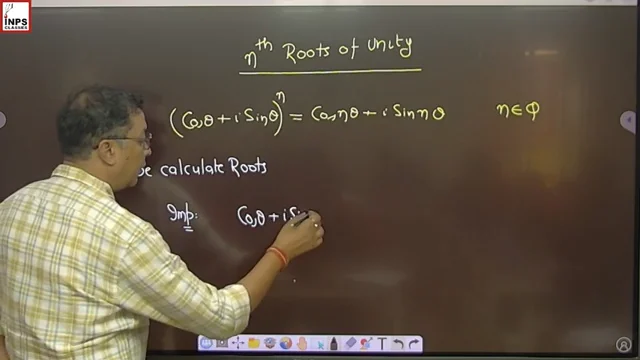 INPS
CLASSES
nth Roots of Unity
(Cosθ + i Sinθ)^n = Cos nθ + i Sin nθ n ∈ Q
calculate Roots
Imp: Cosθ + i